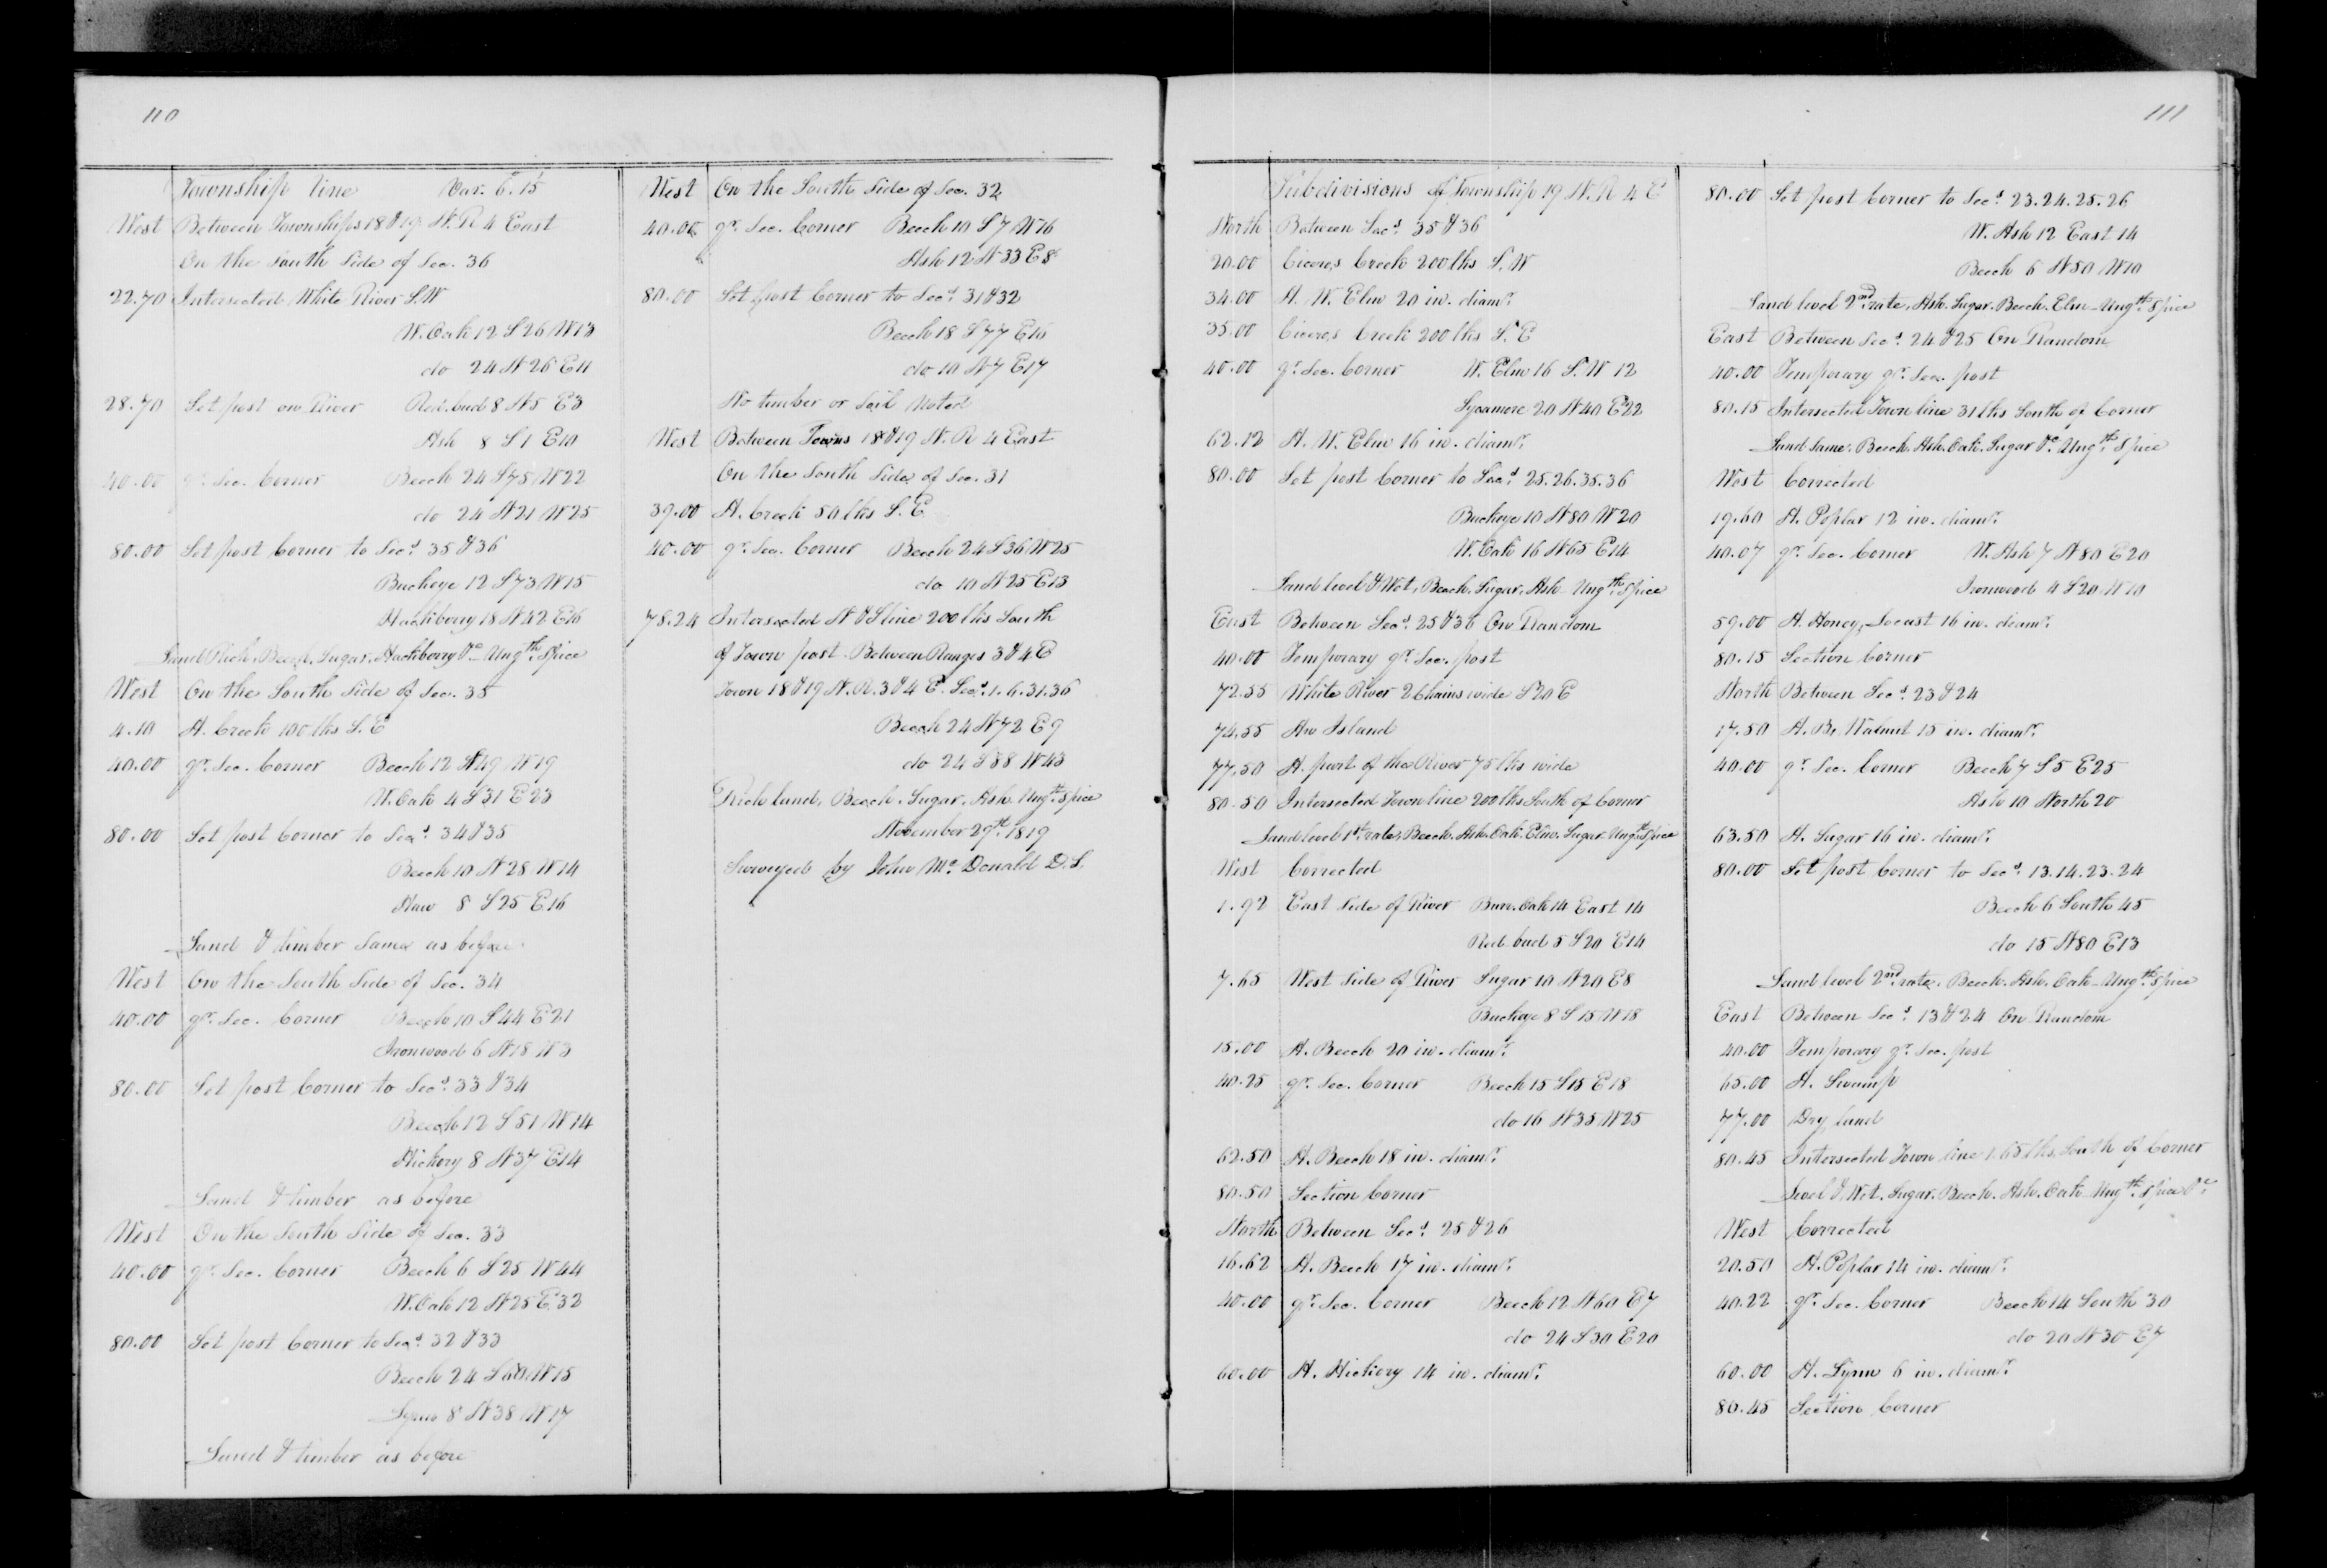 110
Township line Var. 6°.15'
West Between Townships 18 & 19 N. R 4 East
On the South Side of Sec. 36
22.70 Intersected White River S.W
W. Oak 12 S 26 W 13
do 24 N 26 E 11
28.70 Set post on River Red.bud 8 N 5 E 3
Ash 8 S 1 E 10
40.00 qr. Sec. Corner Beech 24 S 75 W 22
do 24 N 21 W 25
80.00 Set post Corner to Secs. 35 & 36
Buckeye 12 S 73 W 15
Hackberry 18 N 42 E 16
Land Rich, Beech, Sugar, Hackberry &c Ungth. Spice
West On the South Side of Sec. 35
4.10 A. Creek 100 lks S. E
40.00 qr. Sec. Corner Beech 12 N 49 W 19
W. Oak 4 S 31 E 23
80.00 Set post Corner to Secs. 34 & 35
Beech 10 N 28 W 14
Haw 8 S 25 E 16
Land & timber Same as before
West On the South Side of Sec. 34
40.00 qr. Sec. Corner Beech 10 S 44 E 21
Ironwood 6 N 18 W 3
80.00 Set post Corner to Secs. 33 & 34
Beech 12 S 51 W 14
Hickory 8 N 37 E 14
Land & timber as before
West On the South Side of Sec. 33
40.00 qr. Sec. Corner Beech 6 S 25 W 44
W. Oak 12 N 25 E 32
80.00 Set post Corner to Secs. 32 & 33
Beech 24 S 60 W 15
Lynn 8 N 38 W 17
Land & timber as before
West On the South Side of Sec. 32
40.00 qr. Sec. Corner Beech 10 S 7 W 16
Ash 12 N 33 E 8
80.00 Set post Corner to Secs. 31 & 32
Beech 18 S 77 E 16
do 10 N 7 E 17
No timber or Soil Noted
West Between Towns 18 & 19 N. R 4 East
On the South Side of Sec. 31
39.00 A. Creek 50 lks S. E
40.00 qr. Sec. Corner Beech 24 S 36 W 25
do 10 N 25 E 13
78.24 Intersected N & S line 200 lks South
of Town post. Between Ranges 3 & 4 E
Town 18 & 19 N. R. 3 & 4 E. Secs. 1. 6. 31. 36
Beech 24 N 72 E 9
do 24 S 88 W 43
Rich land, Beech, Sugar, Ash Ungth. Spice
November 29th. 1819
Surveyed by John Mc Donald D. S.
111
Subdivisions of Township 19 N. R 4 E
North Between Secs. 35 & 36
20.00 Ciceros Creek 200 lks S. W
34.00 A. W. Elm 20 in. diamr.
35.00 Ciceros Creek 200 lks S. E
40.00 qr. Sec. Corner W. Elm 16 S. W 12
Sycamore 20 N 40 E 22
62.12 A. W. Elm 16 in. diamr.
80.00 Set post Corner to Secs. 25. 26. 35. 36
Buckeye 10 N 80 W 20
W. Oak 16 N 65 E 14
Land level & Wet, Beech, Sugar, Ash Ungth. Spice
East Between Secs. 25 & 36 On Random
40.00 Temporary qr. Sec. post
72.55 White River 2 Chains wide S 20 E
74.55 An Island
77.50 A. part of the River 75 lks wide
80.50 Intersected Town line 200 lks South of Corner
Land level 1st. rate, Beech. Ash. Oak. Elm. Sugar Ungth. Spice
West Corrected
1.92 East Side of River Burr. Oak 14 East 14
Red.bud 5 S 20 E 14
7.65 West Side of River Sugar 10 N 20 E 8
Buckeye 8 S 15 W 18
15.00 A. Beech 20 in. diamr.
40.25 qr. Sec. Corner Beech 15 S 15 E 18
do 16 N 35 W 25
62.50 A. Beech 18 in. diamr.
80.50 Section Corner
North Between Secs. 25 & 26
16.62 A. Beech 17 in. diamr.
40.00 qr. Sec. Corner Beech 12 N 60 E 7
do 24 S 30 E 20
60.00 A. Hickory 14 in. diamr.
80.00 Set post Corner to Secs. 23. 24. 25. 26
W. Ash 12 East 14
Beech 6 N 50 W 10
Land level 2nd. rate, Ash. Sugar. Beech. Elm - Ungth. Spice
East Between Secs. 24 & 25 On Random
40.00 Temporary qr. Sec. post
80.15 Intersected Town line 31 lks South of Corner
Land Same. Beech. Ash. Oak. Sugar &c. Ungth. Spice
West Corrected
19.60 A. Poplar 12 in. diamr.
40.07 qr. Sec. Corner W. Ash 7 N 80 E 20
Ironwood 4 S 20 W 10
59.00 A. Honey, Locust 16 in. diamr.
80.15 Section Corner
North Between Secs. 23 & 24
17.50 A. B, Walnut 15 in. diamr.
40.00 qr. Sec. Corner Beech 7 S 5 E 25
Ash 10 North 20
63.50 A. Sugar 16 in. diamr.
80.00 Set post Corner to Secs. 13. 14. 23. 24
Beech 6 South 45
do 15 N 80 E 13
Land level 2nd. rate. Beech. Ash. Oak - Ungth. Spice
East Between Secs. 13 & 24 On Random
40.00 Temporary qr. Sec. post
65.00 A. Swamp
77.00 Dry land
80.45 Intersected Town line 1.65 lks South of Corner
Level & Wet. Sugar. Beech. Ash. Oak Ungth. Spice &c.
West Corrected
20.50 A. Poplar 14 in. diamr.
40.22 qr. Sec. Corner Beech 14 South 30
do 20 N 30 E 7
60.00 A. Lynn 6 in. diamr.
80.45 Section Corner